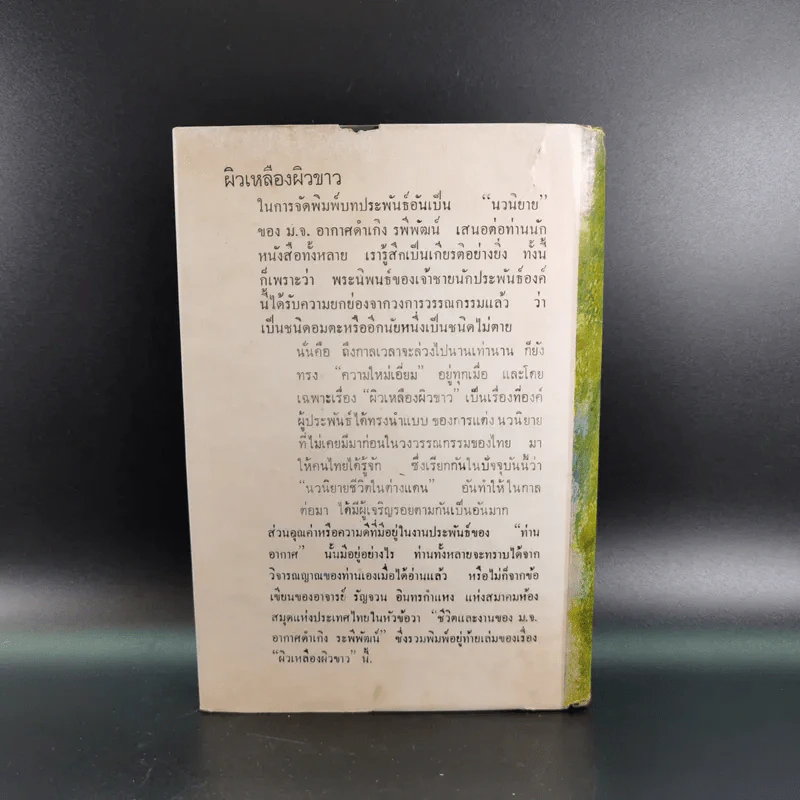 ผิวเหลืองผิวขาว
ในการจัดพิมพ์บทประพันธ์อันเป็น "นวนิยาย"
ของ ม.จ. อากาศดำเกิง รพีพัฒน์ เสนอต่อท่านนัก
หนังสือทั้งหลาย เรารู้สึกเป็นเกียรติอย่างยิ่ง ทั้งนี้
ก็เพราะว่า พระนิพนธ์ของเจ้าชายนักประพันธ์องค์
นี้ได้รับความยกย่องจากวงการวรรณกรรมแล้ว ว่า
เป็นชนิดอมตะหรืออีกนัยหนึ่งเป็นชนิดไม่ตาย
นั่นคือ ถึงกาลเวลาจะล่วงไปนานเท่านาน ก็ยัง
ทรง "ความใหม่เอี่ยม" อยู่ทุกเมื่อ และโดย
เฉพาะเรื่อง "ผิวเหลืองผิวขาว" เป็นเรื่องที่องค์
ผู้ประพันธ์ได้ทรงนำแบบ ของการแต่ง นวนิยาย
ที่ไม่เคยมีมาก่อนในวงวรรณกรรมของไทย มา
ให้คนไทยได้รู้จัก ซึ่งเรียกกันในปัจจุบันนี้ว่า
"นวนิยายชีวิตในต่างแดน" อันทำให้ในกาล
ต่อมา ได้มีผู้เจริญรอยตามกันเป็นอันมาก
ส่วนอุณค่าหรือความดีที่มีอยู่ในงานประพันธ์ของ "ท่าน
อากาศ" นั้นมีอยู่อย่างไร ท่านทั้งหลายจะทราบได้จาก
วิจารณญาณของท่านเองเมื่อได้อ่านแล้ว หรือไม่ก็จากข้อ
เขียนของอาจารย์ รัญจวน อินทรกำแหง แห่งสมาคมห้อง
สมุดแห่งประเทศไทยในหัวข้อว่า "ชีวิตและงานของ ม.จ.
อากาศดำเกิง ระพีพัฒน์" ซึ่งรวมพิมพ์อยู่ท้ายเล่มของเรื่อง
"ผิวเหลืองผิวขาว" นี้.